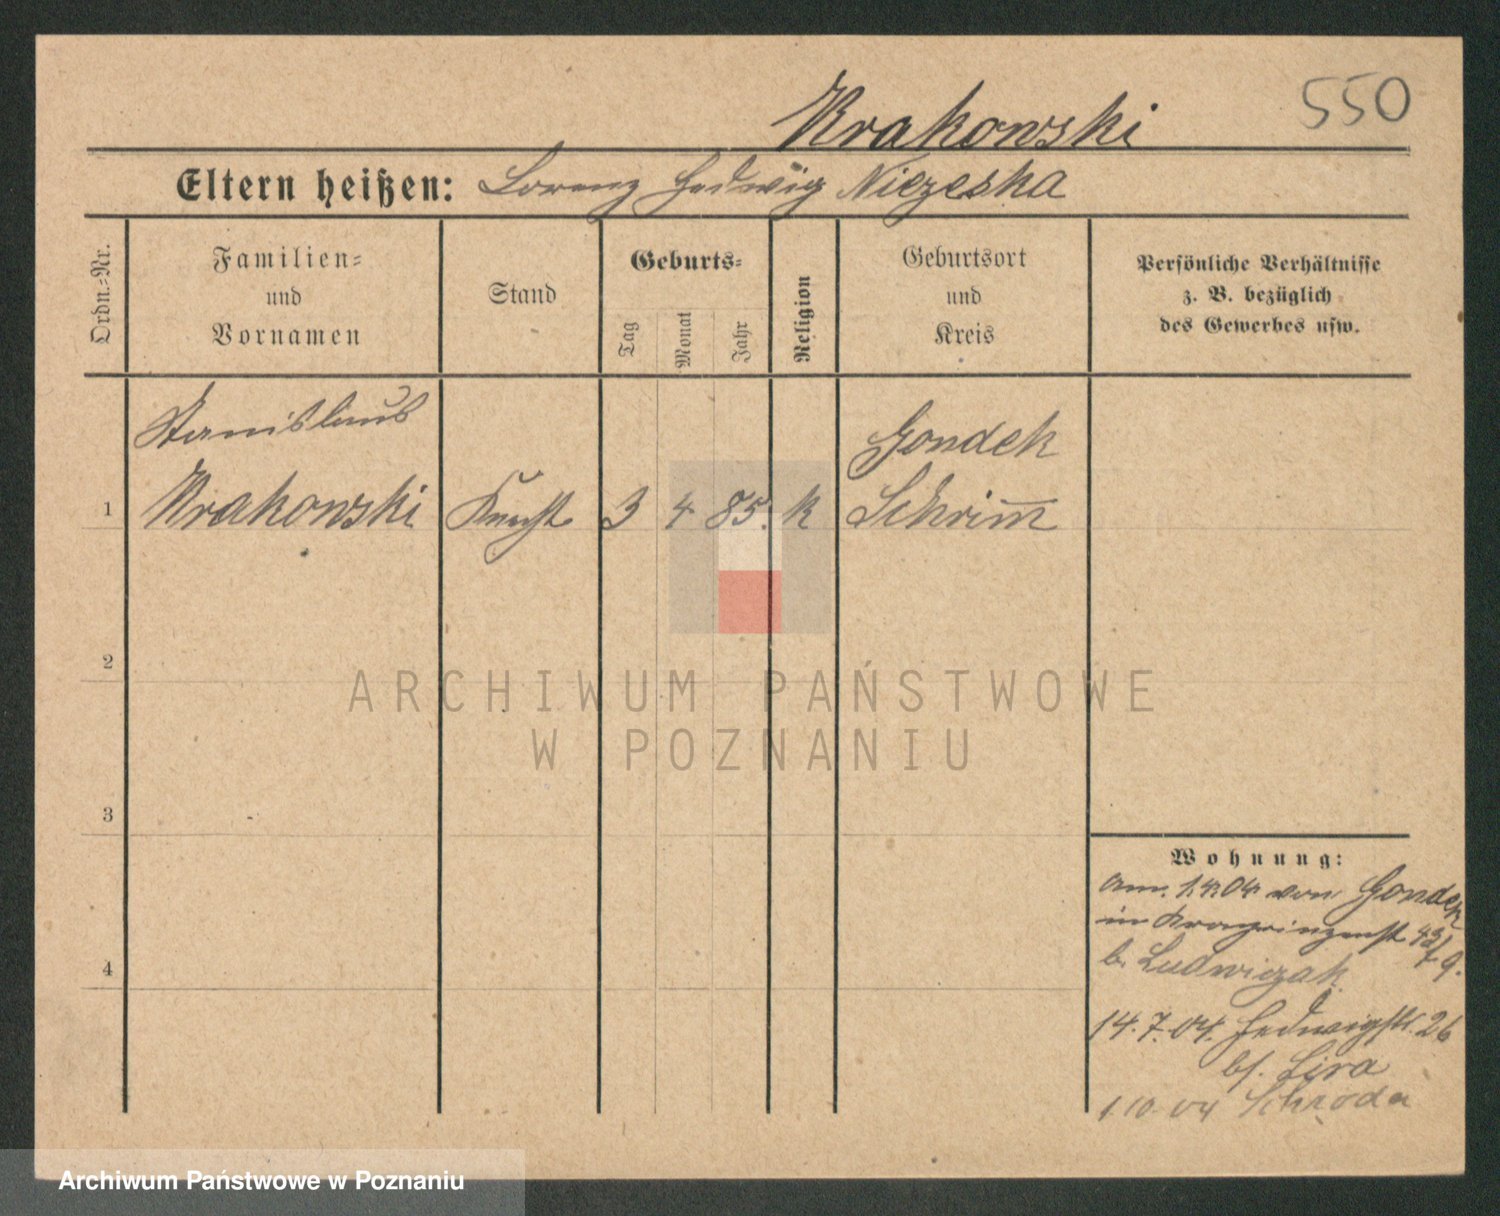 550
Krakowski
Eltern heißen: Lorenz Hedwig Niezeska
Ordn.-Nr.
Familien-
und
Vornamen
Stand
Geburts-
Tag
Monat
Jahr
Religion
Geburtsort
und
Kreis
Persönliche Verhältnisse
z. B. bezüglich
des Gewerbes usw.
Stanislaus
Gondek
1 Krakowski Knecht 3 4 85. k Schrimm
2
3
4
Wohnung:
1.4.04 von Gondek
in
b. Ludwiczak
14.7.04. Hedwigstr. 26
bf. Lira
1.10.04 Schroda
ARCHIWUM PAŃSTWOWE
W POZNANIU
Archiwum Państwowe w Poznaniu